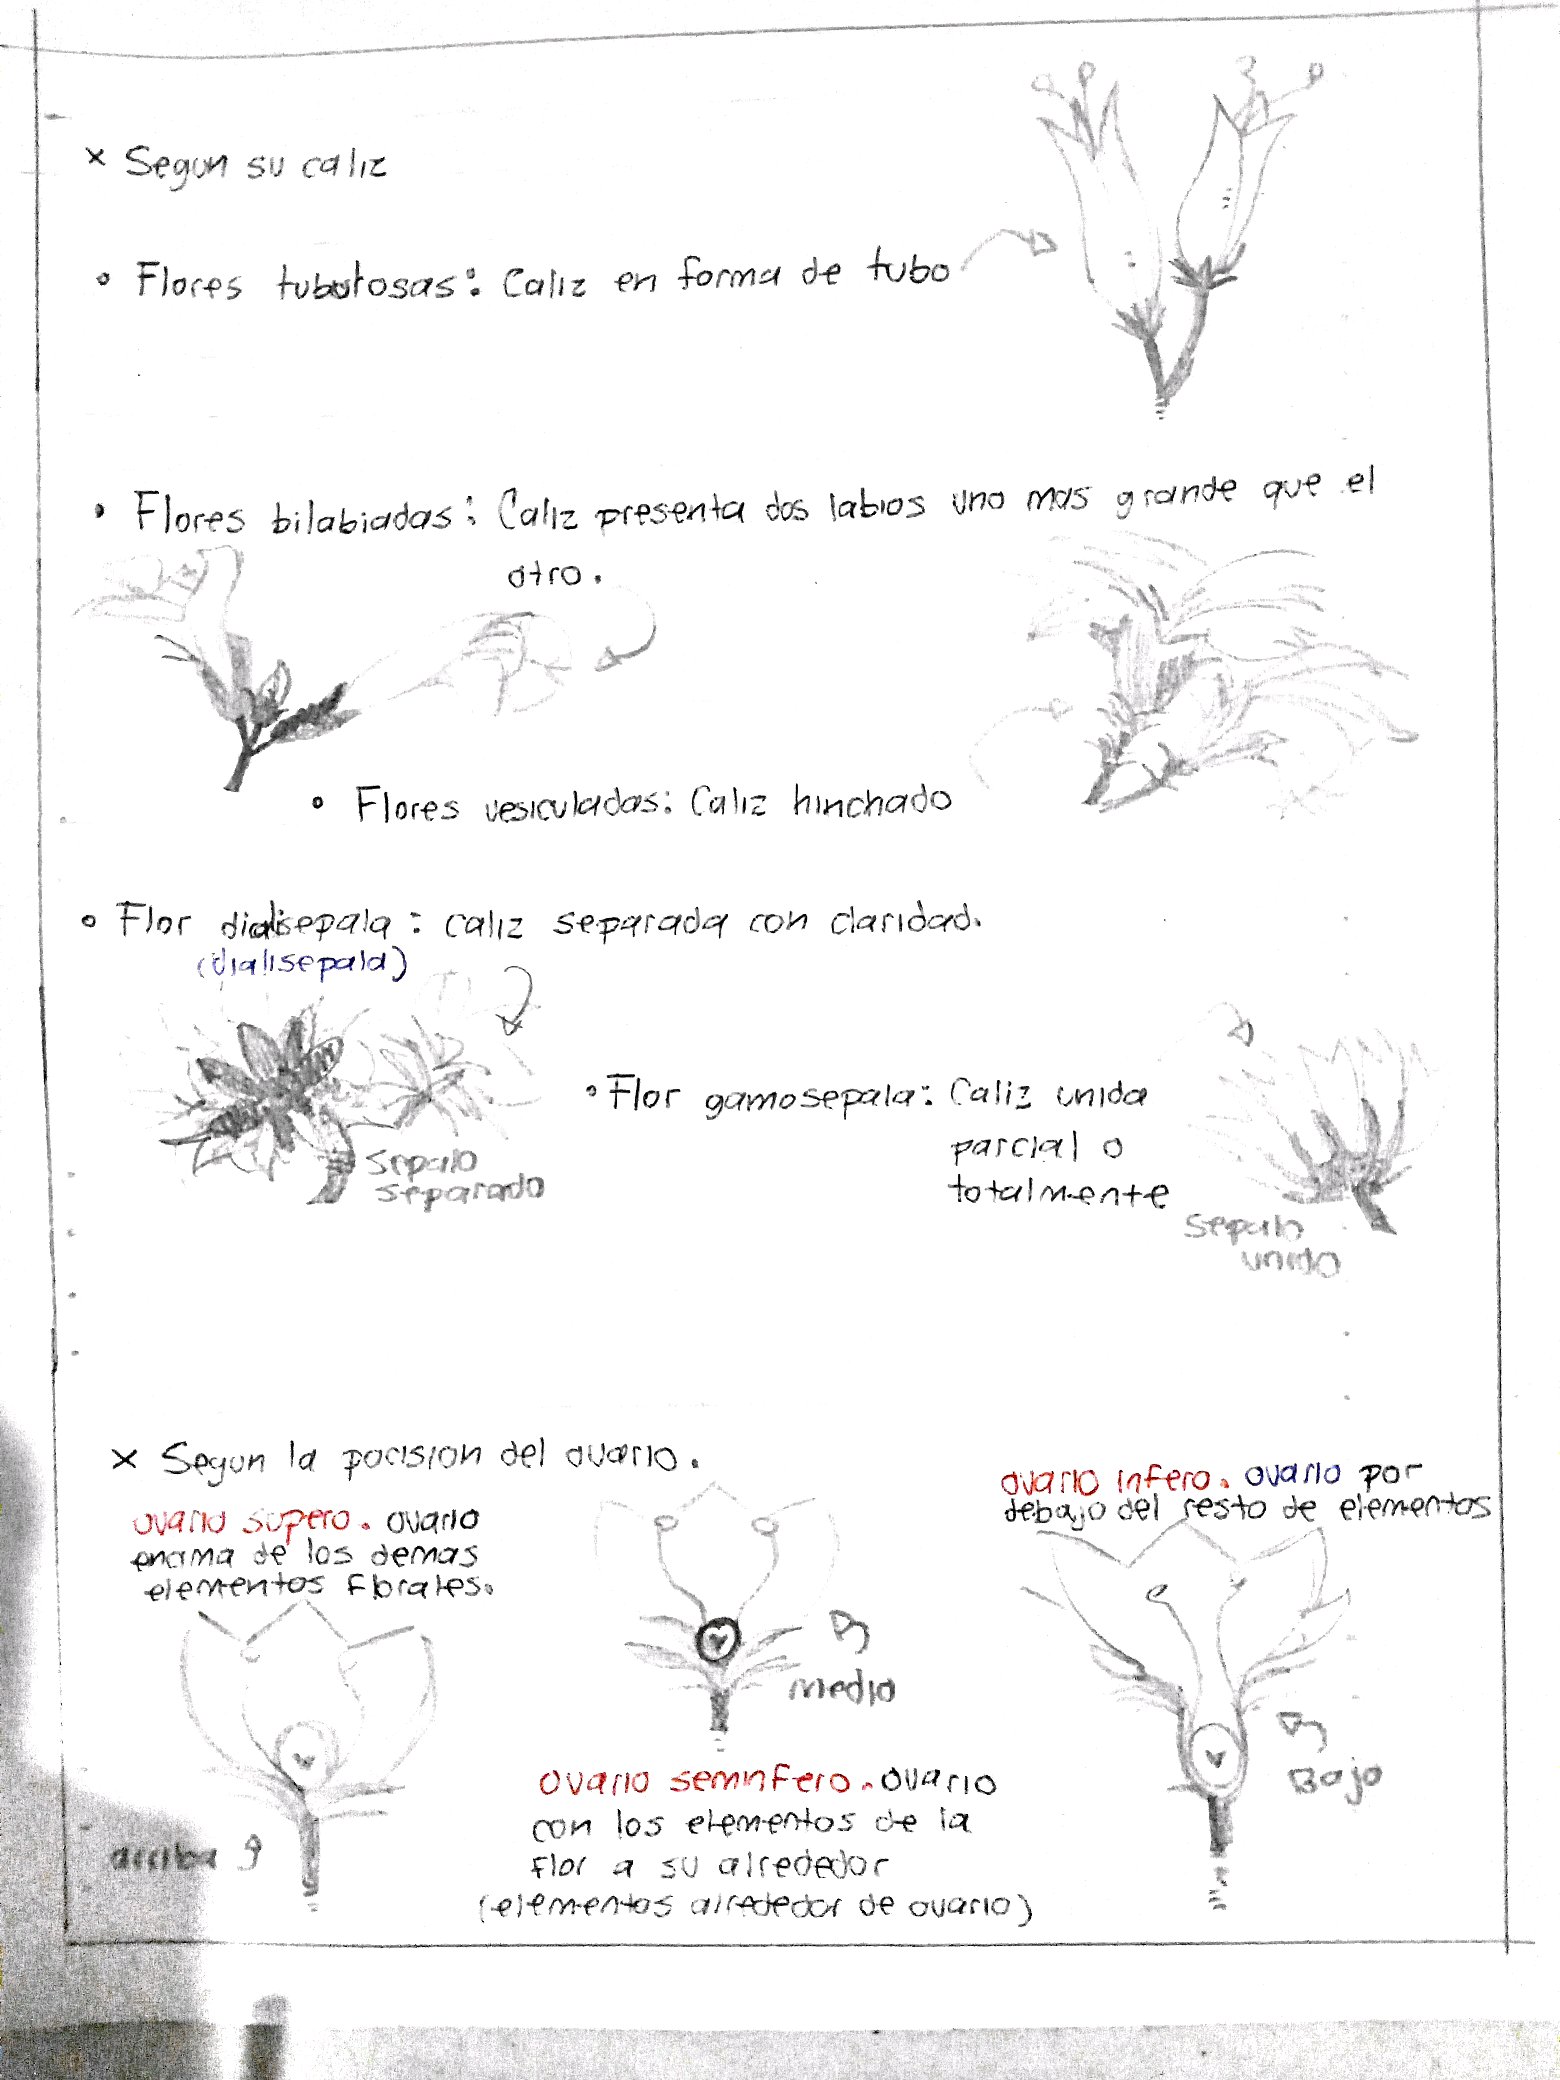 x Segun su caliz
• Flores tubutosas: Caliz en forma de tubo
• Flores bilabiadas: Caliz presenta dos labios uno mas grande que el
otro.
• Flores vesiculadas: Caliz hinchado
• Flor dialisepala: caliz separada con claridad.
(dialisepala)
Sepalo
separado
• Flor gamosepala: Caliz unida
parcial o
totalmente
Sepalo
unido
x Segun la pocision del ovario.
ovario supero. ovario
encima de los demas
elementos florales.
arriba
medio
ovario seminfero. ovario
con los elementos de la
flor a su alrededor
(elementos alrededor de ovario)
ovario infero. ovario por
debajo del resto de elementos
Bajo